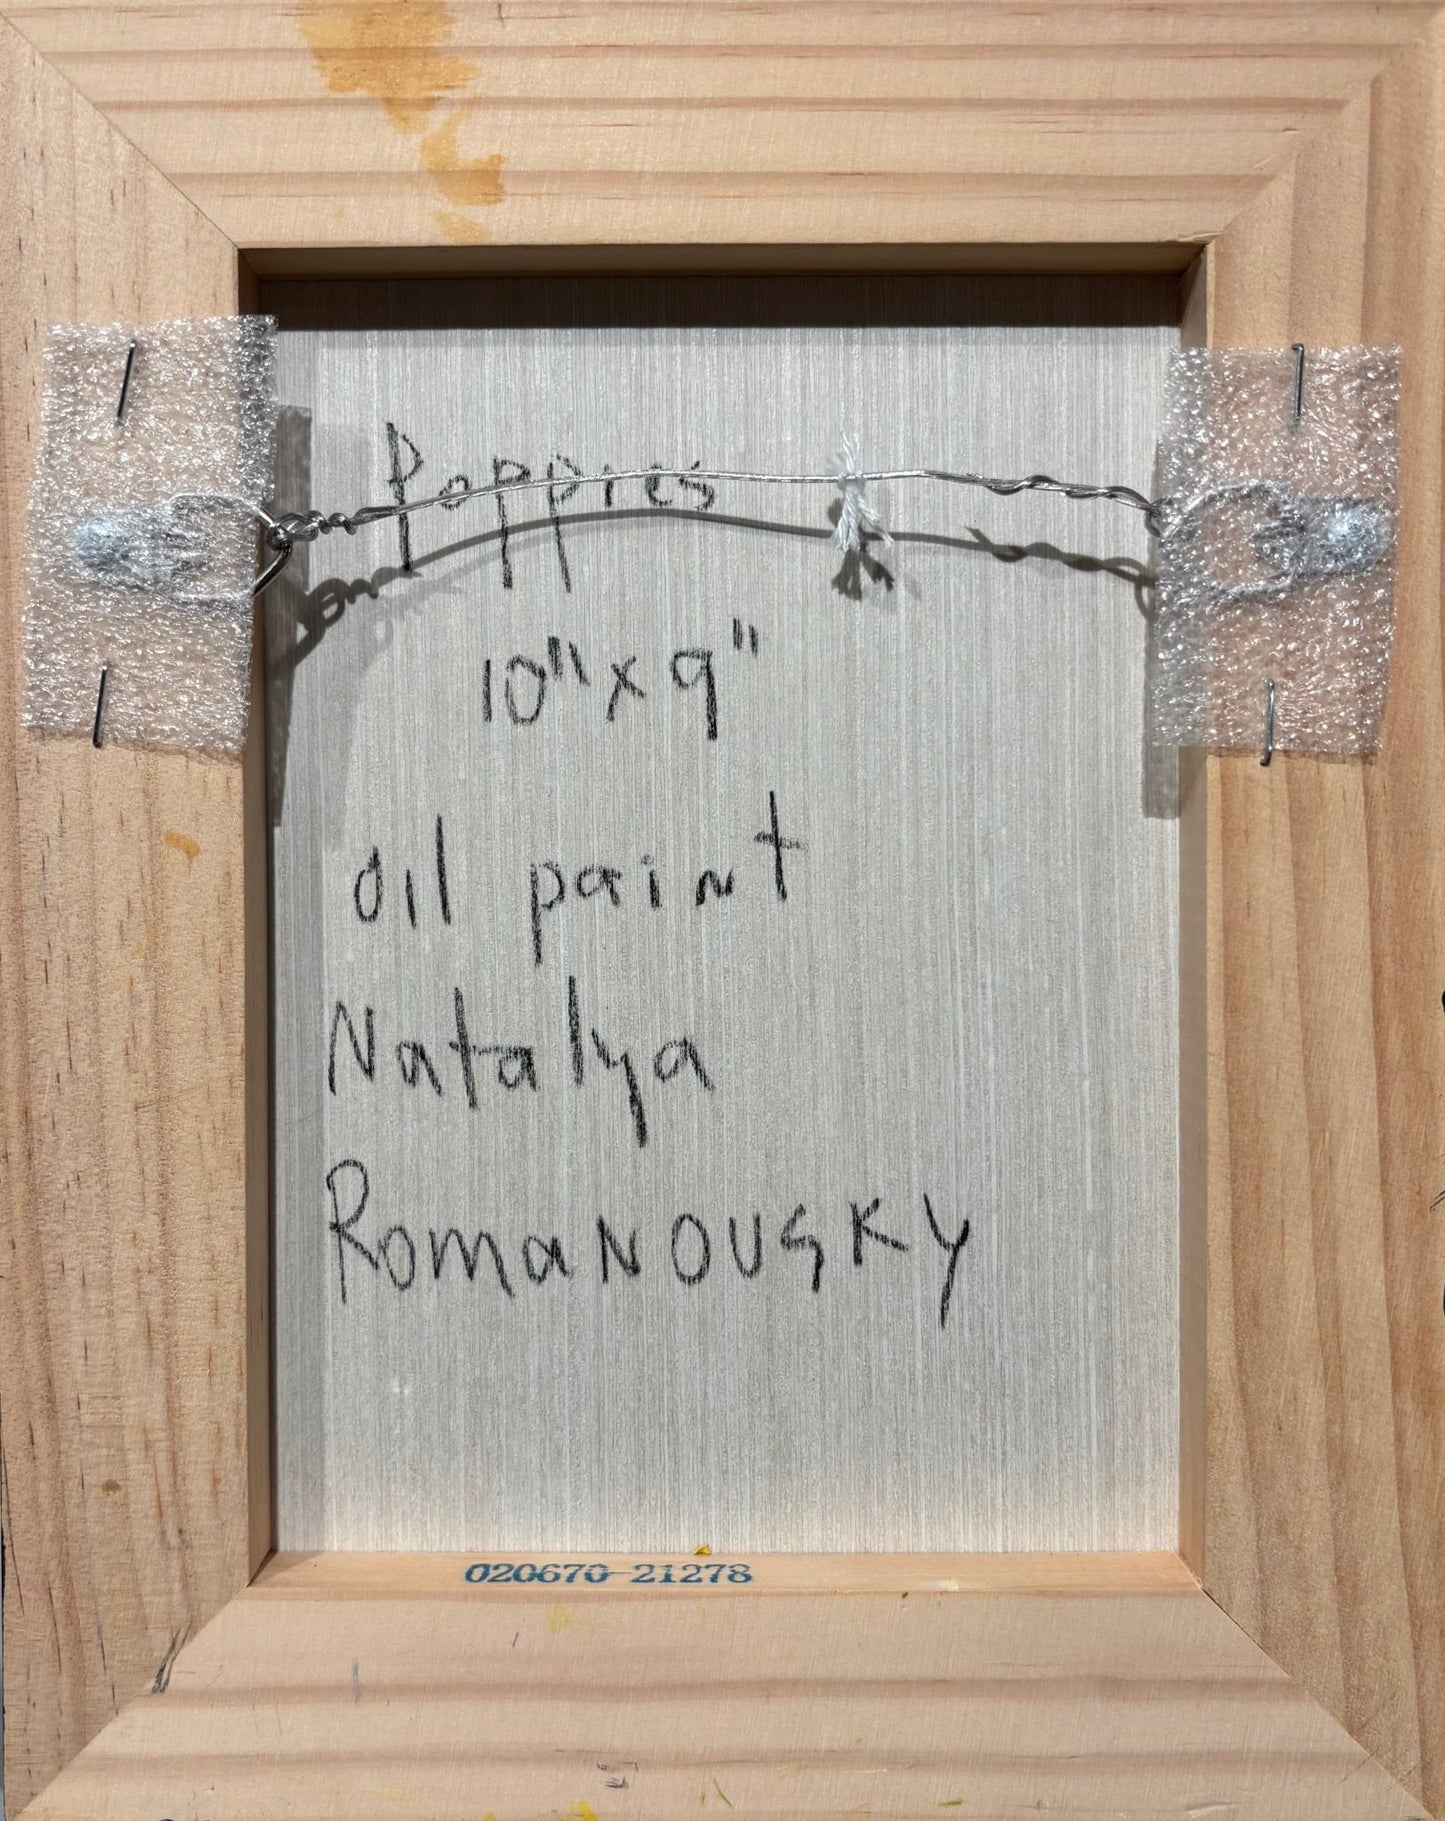 Poppies
10" x 9"
oil paint
Natalya
Romanovsky
020670-21278